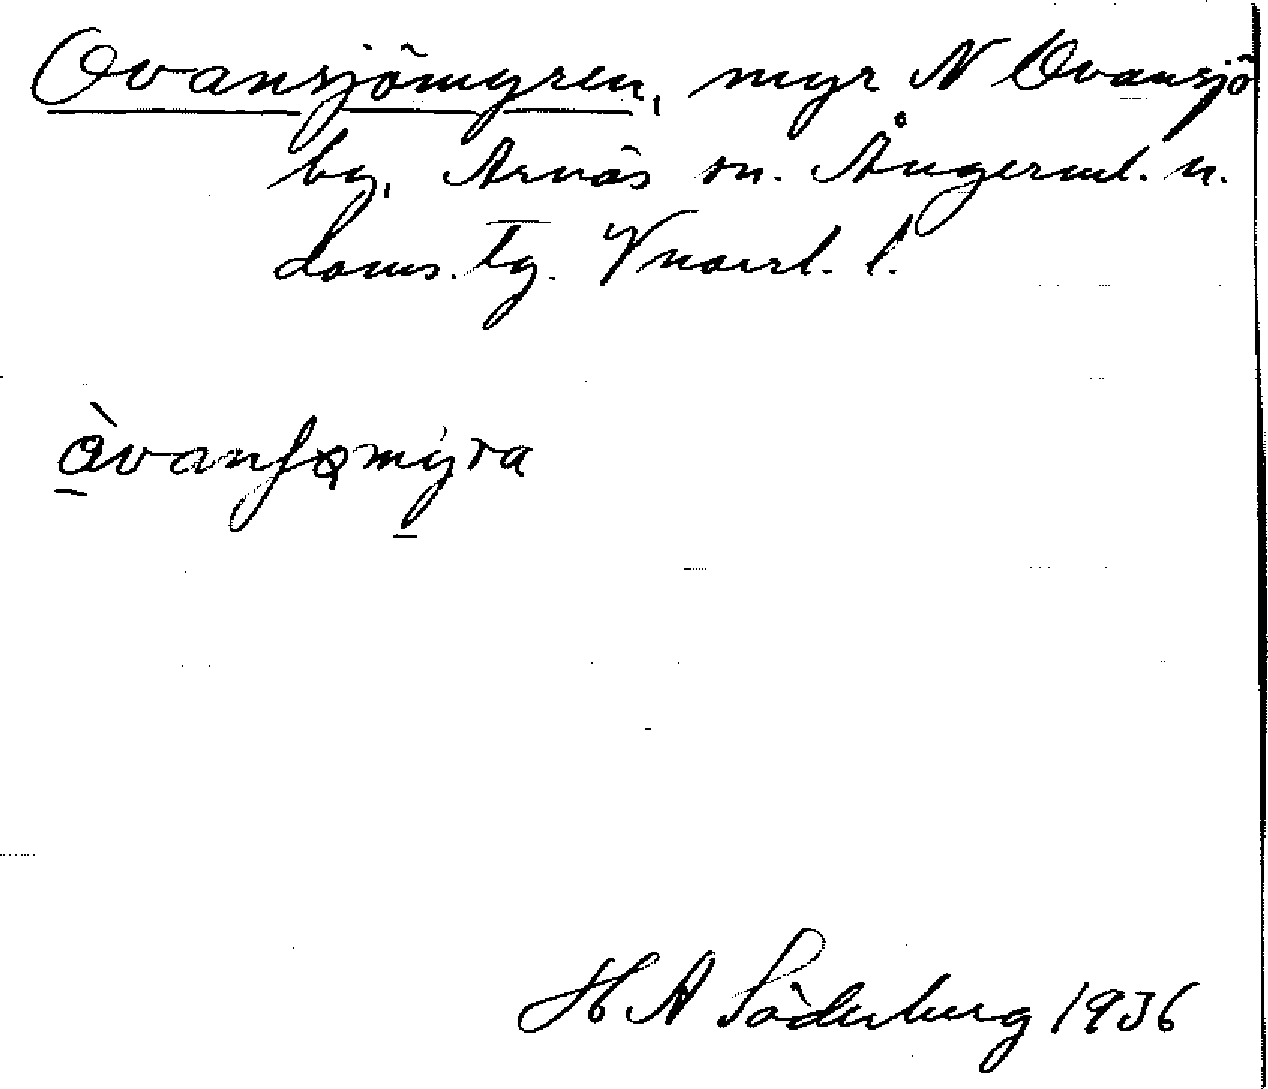 Ovansjömyren, myr N Ovansjö
by, Arnäs sn. Ångerml. n.
doms. tg. Vnorrl. l.
H A Söderberg 1936